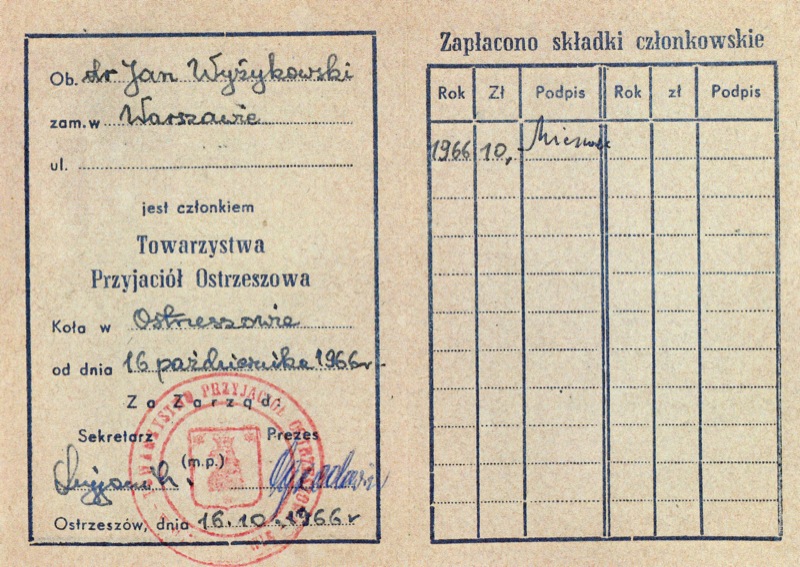 Ob. dr Jan Wyżykowski
zam. w Warszawie
ul.
jest członkiem
Towarzystwa
Przyjaciół Ostrzeszowa
Koła w Ostrzeszowie
od dnia 16 października 1966 r
Za Zarząd:
Sekretarz Prezes
(m.p.)
Ostrzeszów, dnia 16.10.1966 r
TOWARZYSTWO PRZYJACIÓŁ
Zapłacono składki członkowskie
Rok Zł Podpis Rok zł Podpis
1966 10,